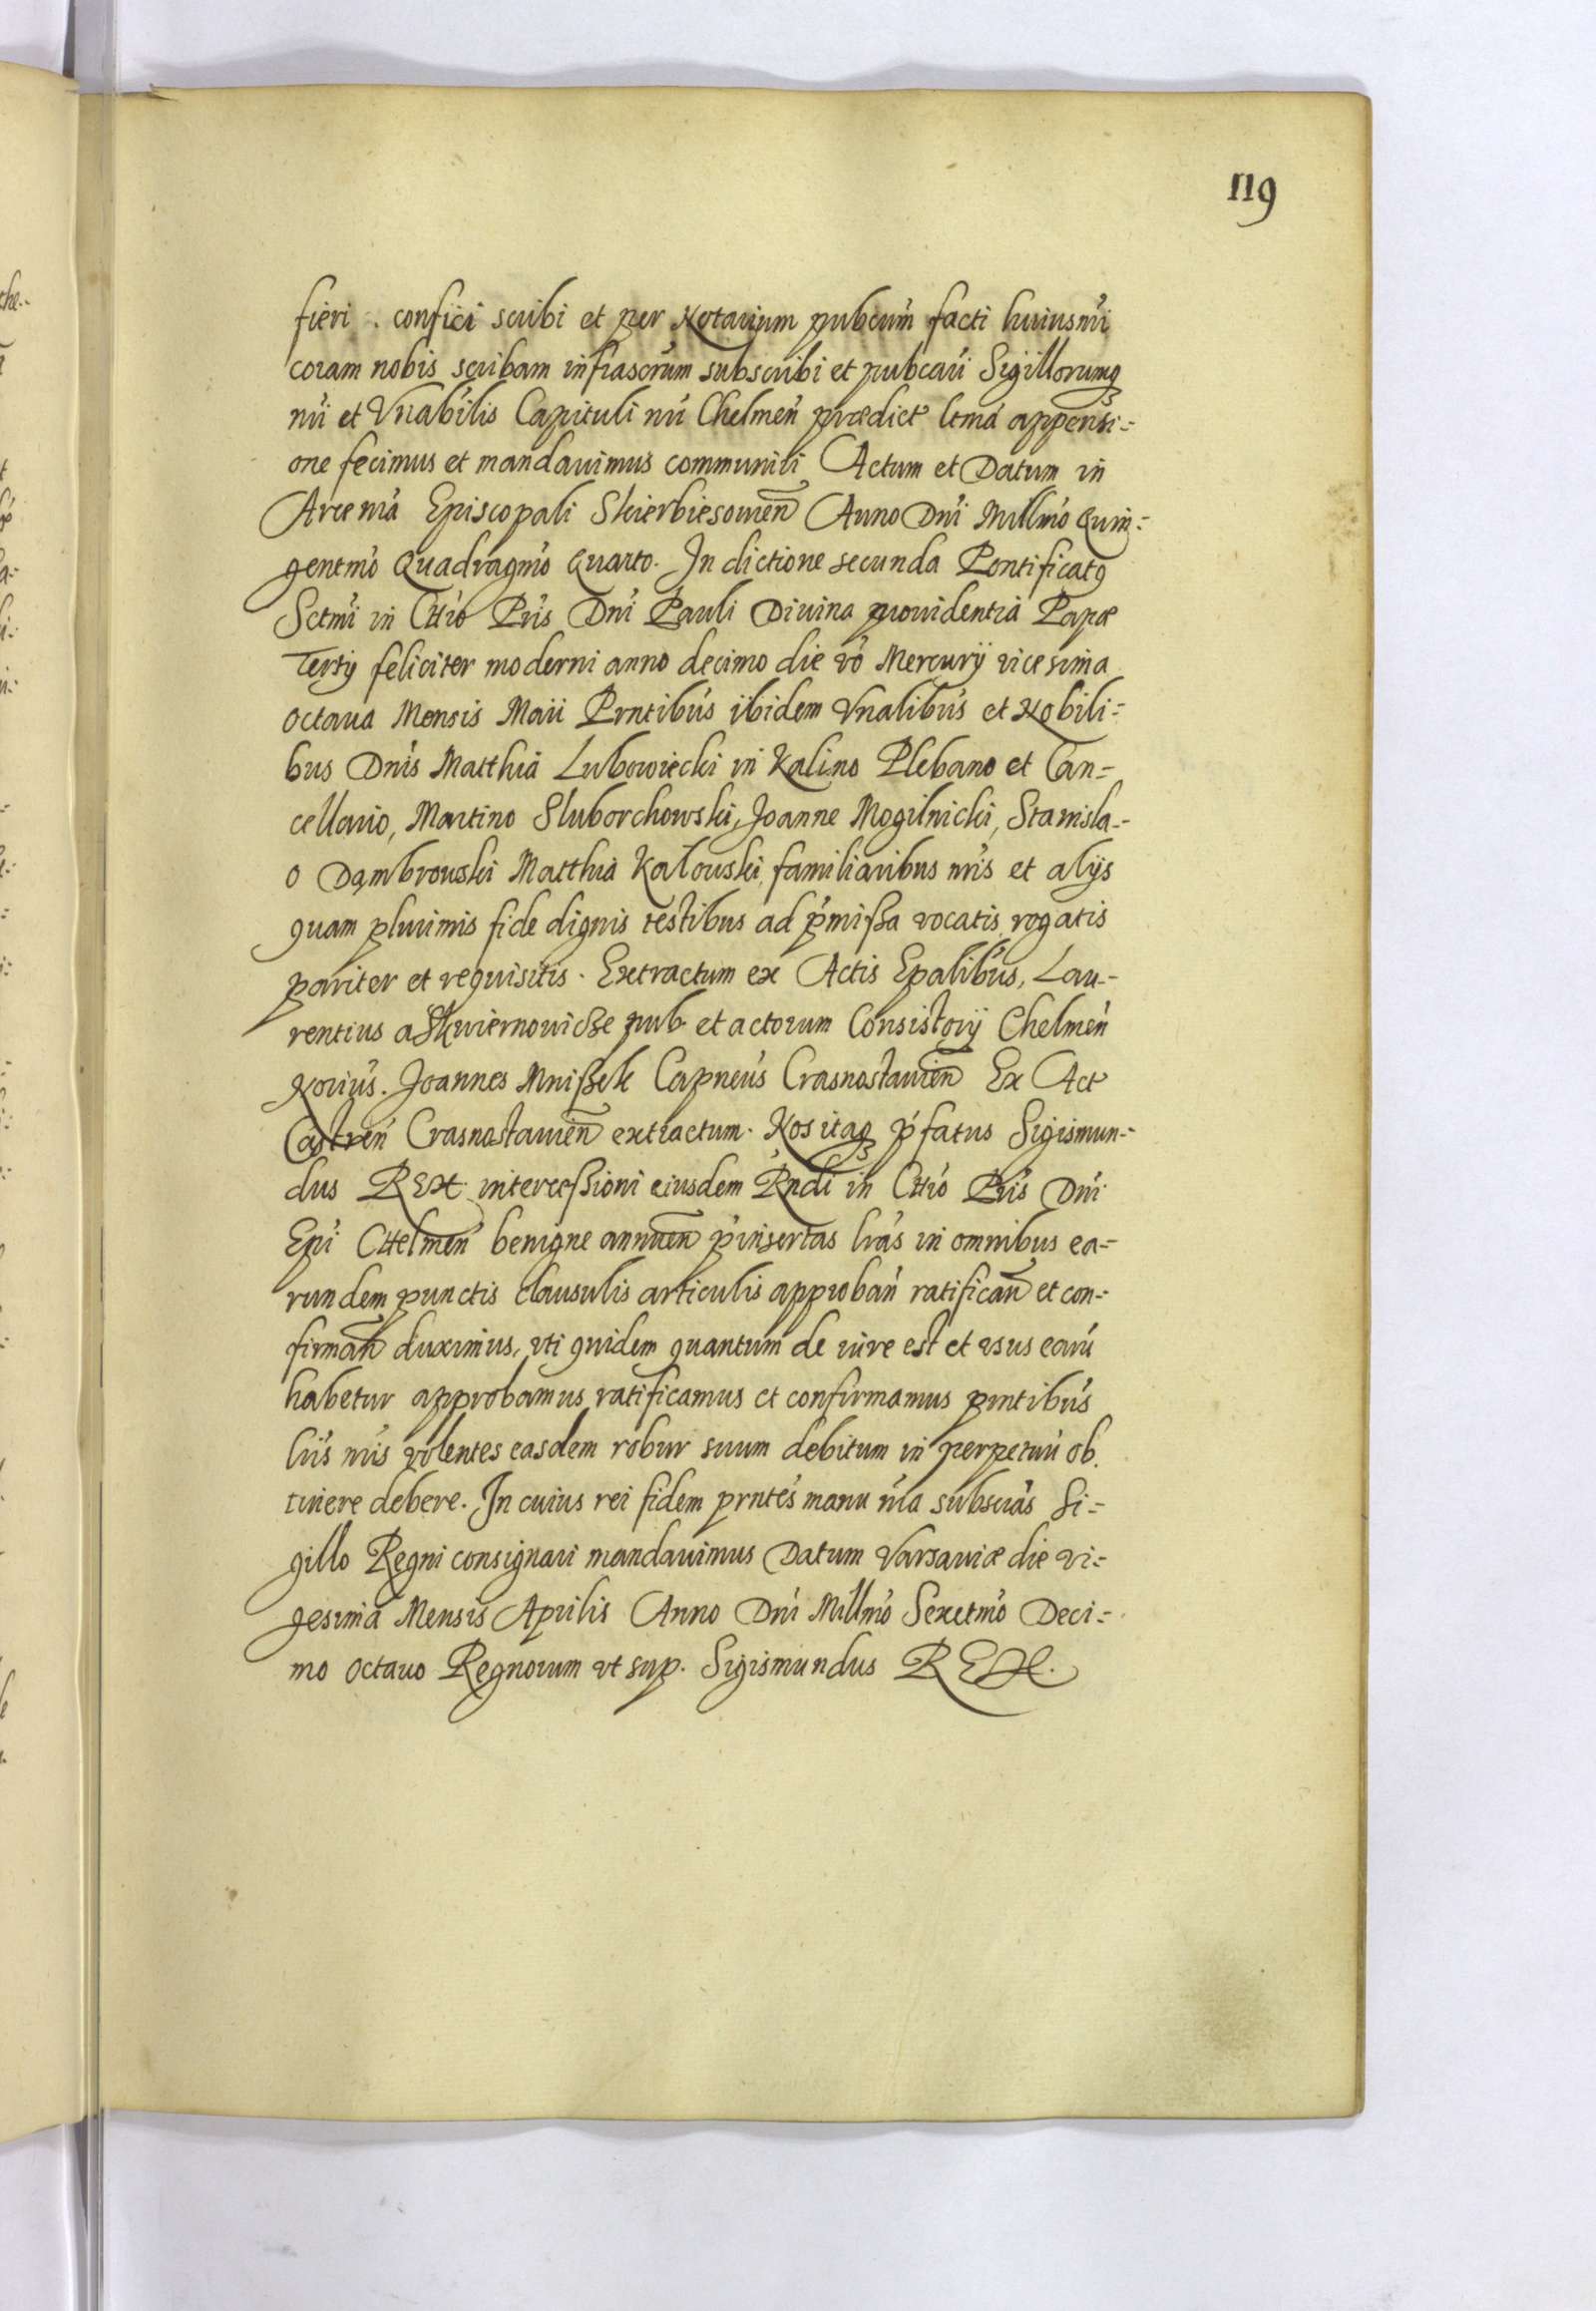 119
fieri. confici scribi et per Notarium pubcum̃ facti huiusm̃i
coram nobis scribam infrascrũm subscribi et pubcari Sigillorumq
nr̃i et Vnabilis Capituli nr̃i Chelmen̄ prædict ltmá appensi=
one fecimus et mandauimus communiri Actum et Datum in
Arce nr̃a Episcopali Skierbiesouien̄ Anno Dnĩ Millm̃o Quin=
gentm̃o Quadragm̃o Quarto. In dictione secunda Pontificatq
Sctmĩ in Chr̃o Pr̃is Dnĩ Pauli Diuina prouidentiá Papæ
Tertij feliciter moderni anno decimo die vo᷃ Mercurij vicesima
octaua Mensis Maii Prntibus̃ ibidem Vnalibus̃ et Nobili=
bus Dnis̃ Matthiá Lubowiecki in Kalino Plebano et Can=
cellario, Martino Sluborchowski, Joanne Mogilnicki, Stanisla=
o Dąmbrowski Matthiá Kałouski, familiaribus nr̃is et alijs
quam plurimis fide dignis testibus ad p̃mißa vocatis, rogatis
pariter et requisitis. Extractum ex Actis Epalibus̃, Lau=
rentius a Skwiernouicße pub. et actorum Consistorij Chelmen̄
Norius̃. Joannes Mnißek Capneus̃ Crasnostauien̄ Ex Act
Castren̄ Crasnostauien̄ extractum. Nos itaq p̃fatus Sigismun=
dus REX intercessioni eiusdem Rndĩ in Chr̃o Pr̃is Dnĩ
Epĩ CHelmen̄ benigne annuen̄ p̃insertas lrãs in omnibus ea=
rundem punctis clausulis articulis approban̄ ratifican̄ et con=
firman̄ duximus, vti quidem quantum de iure est et vsus earũ
habetur approbamus ratificamus et confirmamus pnntibus̃
lr̃is nr̃is volentes easdem robur suum debitum in perpetuũ ob.
tinere debere. In cuius rei fidem prntes̃ manu nr̃a subscrãs Si=
gillo Regni consignari mandauimus Datum Varsauiæ die vi=
gesimá Mensis Aprilis Anno Dnĩ Millm̃o Sexctm̃o Deci=
mo octauo Regnorum vt sup. Sigismundus REX.